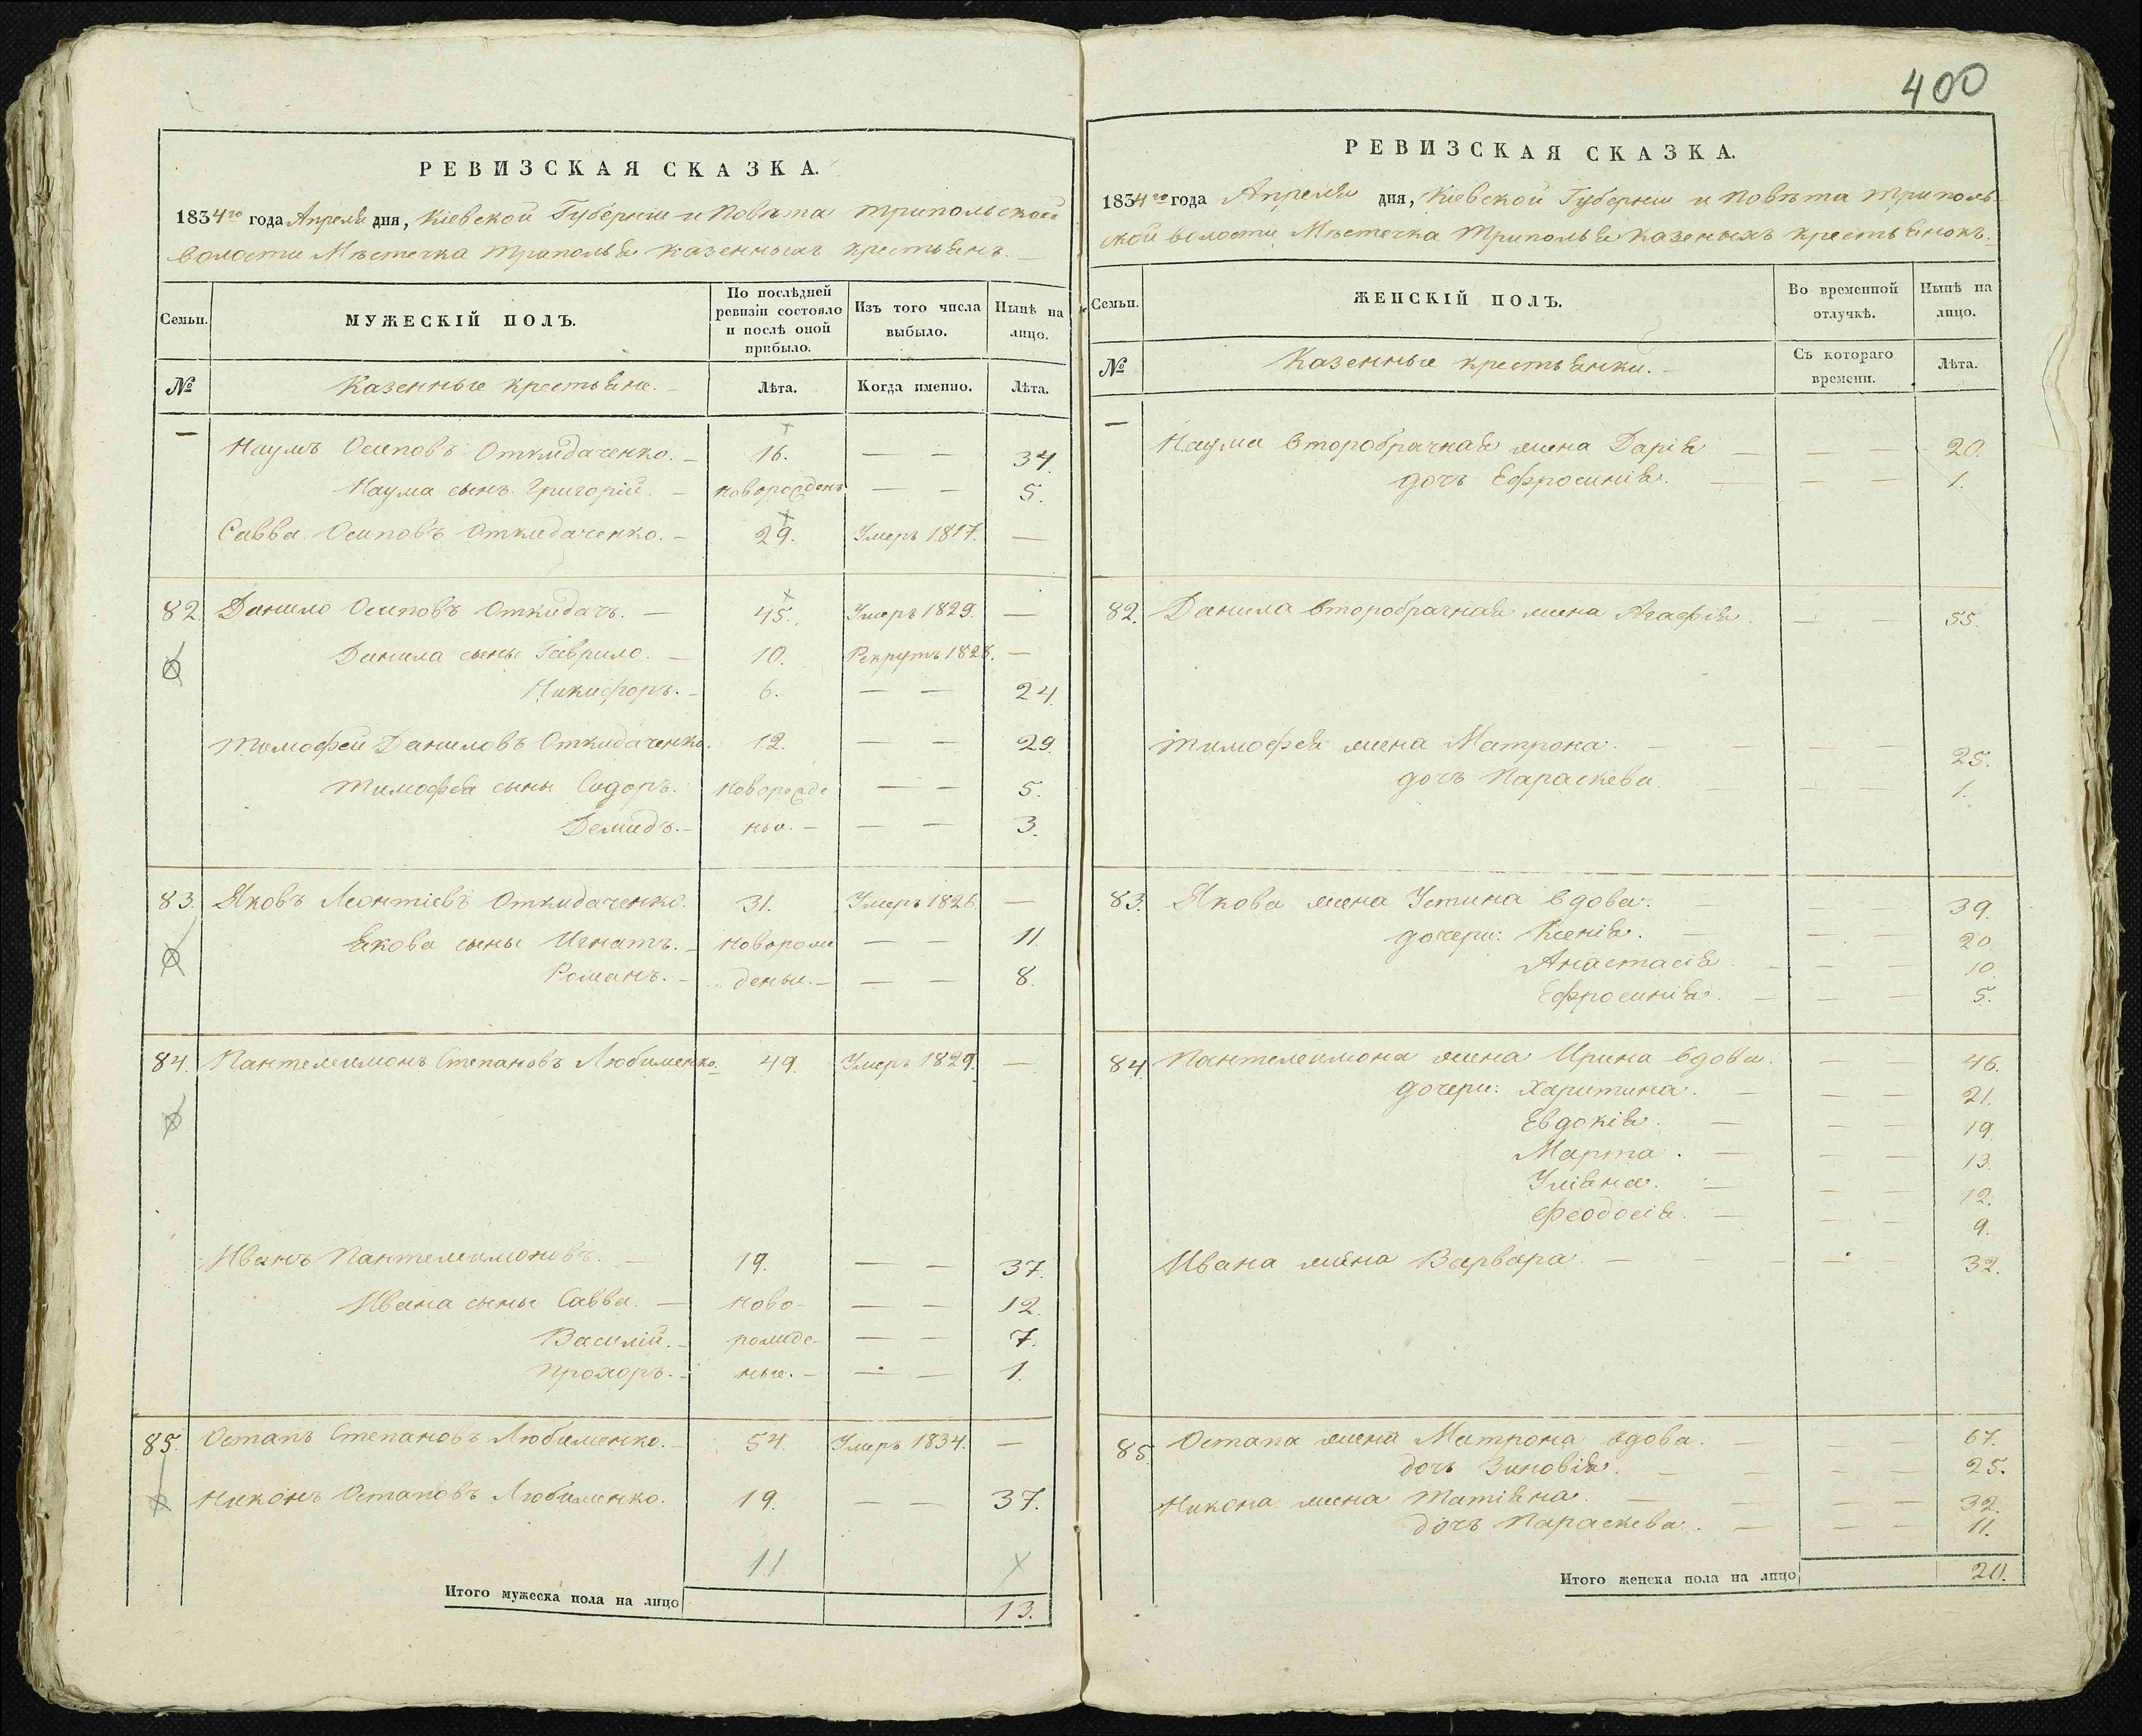 РЕВИЗСКАЯ СКАЗКА.
1834го года Апреля дня, Кіевской Губерніи и Повѣта Трипольской
волости Мѣстечка Триполья казенныхъ крестьянъ.
Семьи. МУЖЕСКІЙ ПОЛЪ. По послѣдней ревизіи состояло и послѣ оной прибыло. Изъ того числа выбыло. Нынѣ на лицо.
№ Казенные крестьяне. Лѣта. Когда именно. Лѣта.
Наумъ Осиповъ Откидаченко. 16. — — 34.
Наума сынъ Григорій. новорожденъ — — 5.
Савва Осиповъ Откидаченко. 29. Умеръ 1817. —
82. Данило Осиповъ Откидачъ. 45. Умеръ 1829. —
Данила сыны Гаврило. 10. Рекрутъ 1828. —
Никифоръ. 6. — — 24.
Тимофей Даниловъ Откидаченко. 12. — — 29.
Тимофея сыны Сидоръ. новорожде — — 5.
Демидъ. ны. — — 3.
83. Яковъ Леонтіевъ Откидаченко. 31. Умеръ 1826. —
Якова сыны Игнатъ. новорож — — 11.
Романъ. дены. — — 8.
84. Пантелеимонъ Степановъ Любименко. 49. Умеръ 1829. —
Иванъ Пантелеимоновъ. 19. — — 37.
Ивана сыны Савва. ново- — — 12.
Василій. рожде- — — 7.
Прохоръ. ные. — — 1.
85. Остапъ Степановъ Любименко. 54. Умеръ 1834. —
Никонъ Остаповъ Любименко. 19. — — 37.
11
Итого мужеска пола на лицо 13.
400
РЕВИЗСКАЯ СКАЗКА.
1834го года Апреля дня, Кіевской Губерніи и Повѣта Триполь-
ской волости Мѣстечка Триполья казеныхъ крестьянокъ.
Семьи. ЖЕНСКІЙ ПОЛЪ. Во временной отлучкѣ. Нынѣ на лицо.
№ Казенные крестьянки. Съ котораго времени. Лѣта.
Наума второбрачная жена Дарія — — 20.
дочь Ефросинія. — — 1.
82. Данила второбрачная жена Агафія. — — 55.
Тимофея жена Матрона. — — 25.
дочь Параскева — — 1.
83. Якова жена Устина вдова. — — 39.
дочери: Ксенія. — — 20.
Анастасія. — — 10.
Ефросинія. — — 5.
84. Пантелеимона жена Ирина вдова. — — 46.
дочери: Харитина. — — 21.
Евдокія. — — 19.
Марта. — — 13.
Уліяна. — — 12.
Феодосія. — — 9.
Ивана жена Варвара. — — 32.
85. Остапа жена Матрона вдова. — — 67.
дочь Зиновія. — — 25.
Никона жена Татіяна. — — 32.
дочь Параскева. — — 11.
Итого женска пола на лицо 20.